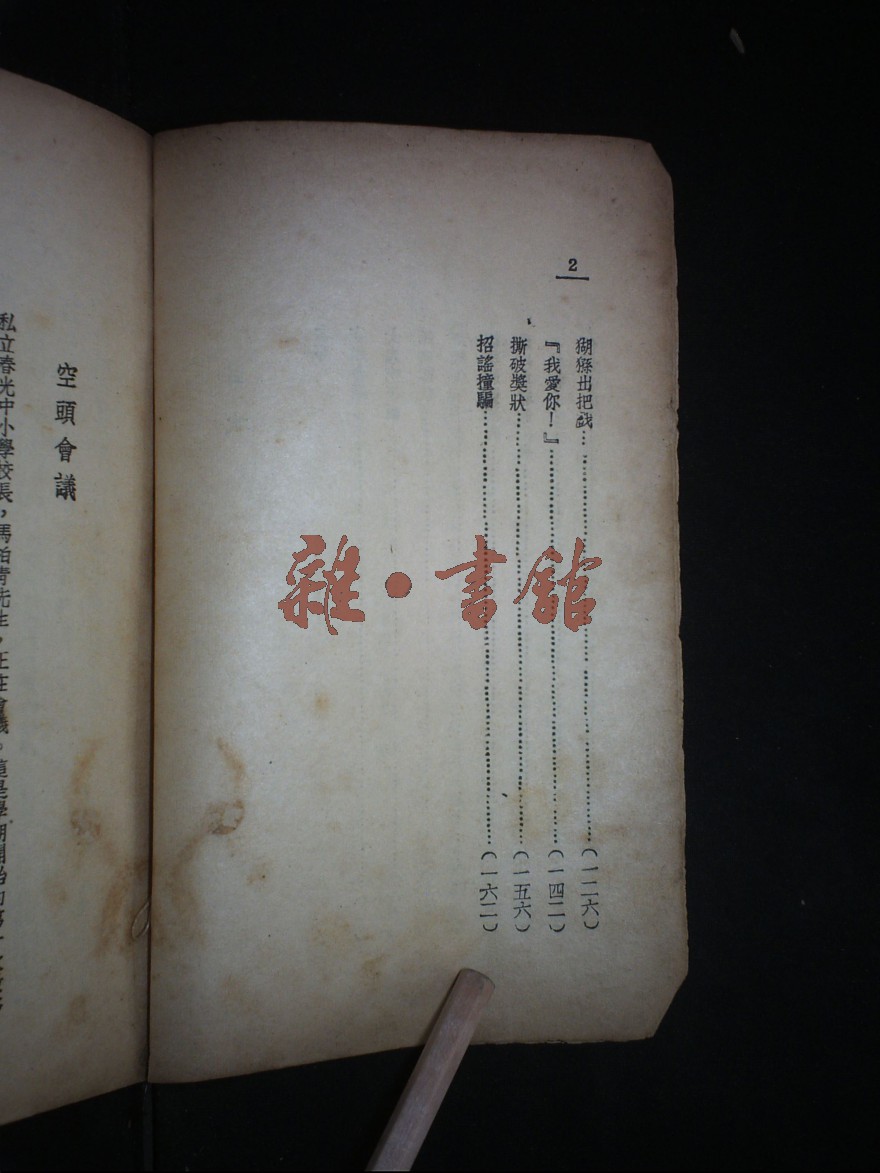 2
猢猻出把戲……（一二六）
『我愛你！』……（一四二）
撕破奬狀……（一五六）
招謠撞騙……（一六二）
雜·書館
空頭會議
私立春光中小學校長，馬柏青先生，正在會議。這是學期開始的第一次